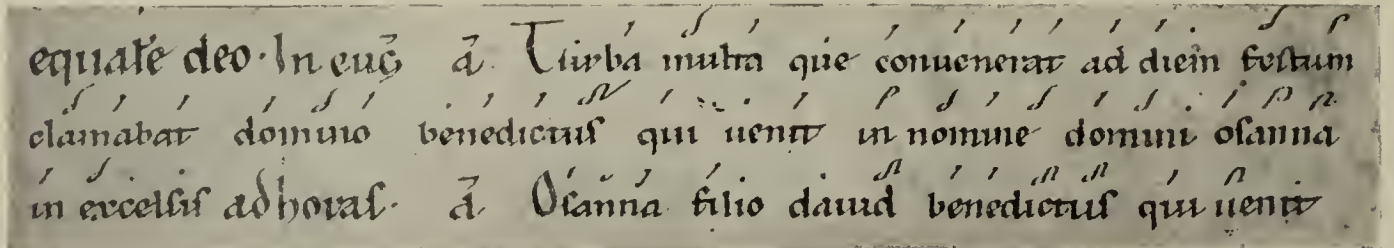 equale deo. In eug̅ a̅. Turba multa que conuenerat ad diem festum
clamabat domino benedictus qui uenit in nomine domini osanna
in excelsis ad horas. a̅. Osanna filio dauid benedictus qui uenit